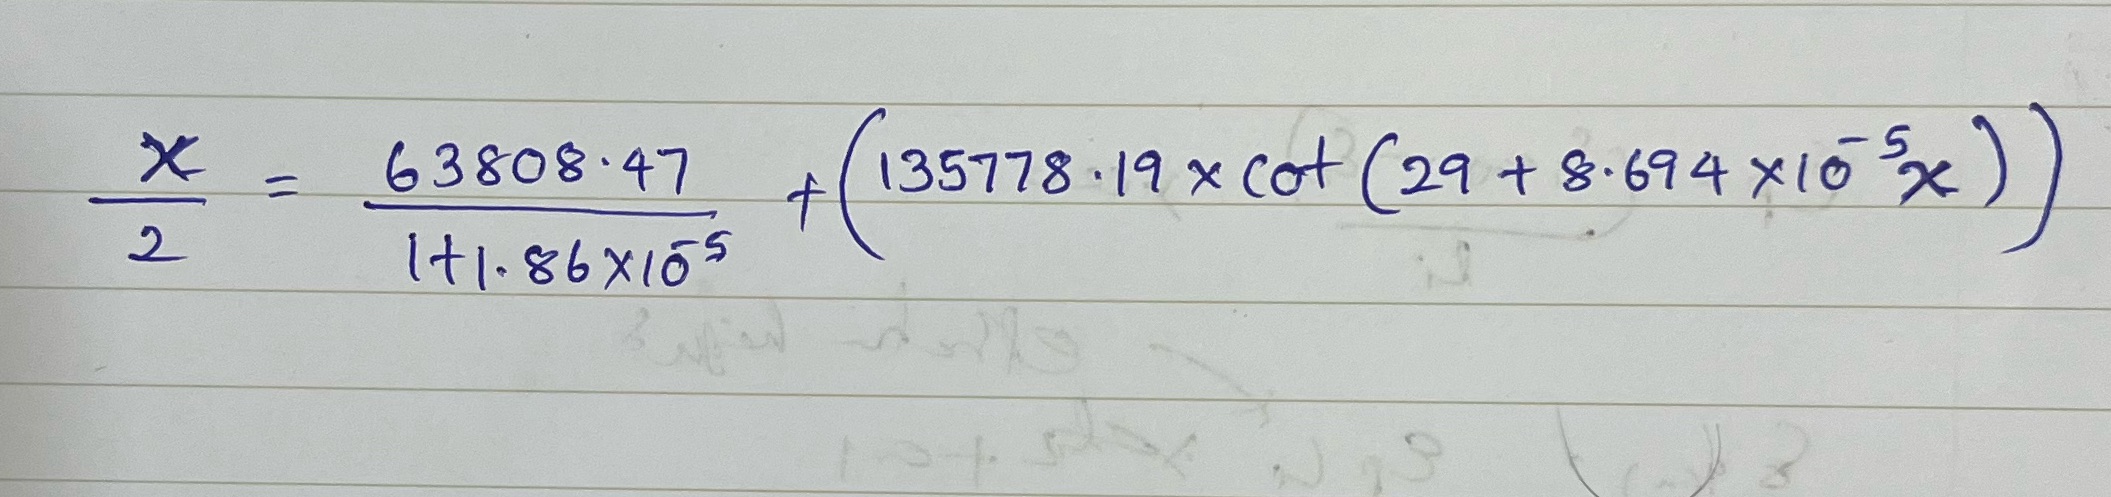 x/2 = 63808.47/(1+1.86×10⁻⁵) + (135778.19 × cot(29 + 8.694×10⁻⁵x))